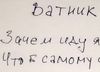 Ватник
Зачем иду я
Что б самому